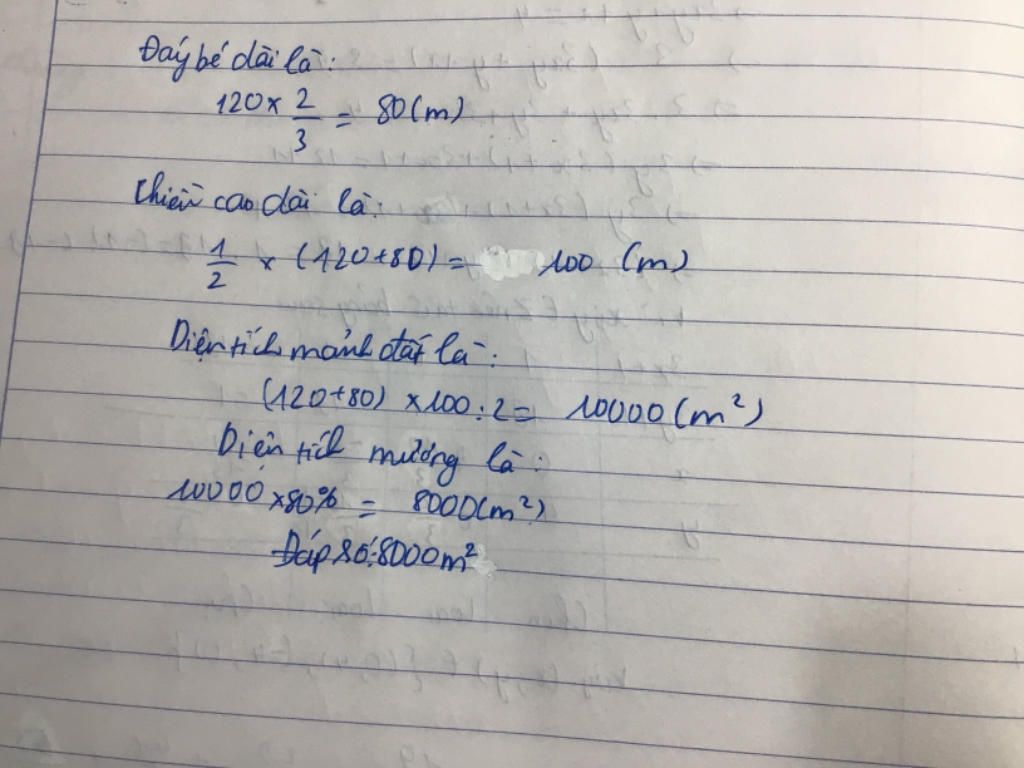 Đáy bé dài là:
120 × 2/3 = 80 (m)
Chiều cao dài là:
1/2 × (120+80) = 100 (m)
Diện tích mảnh đất là:
(120+80) × 100 : 2 = 10000 (m²)
Diện tích mương là:
10000 × 80% = 8000 (m²)
Đáp số: 8000 m²